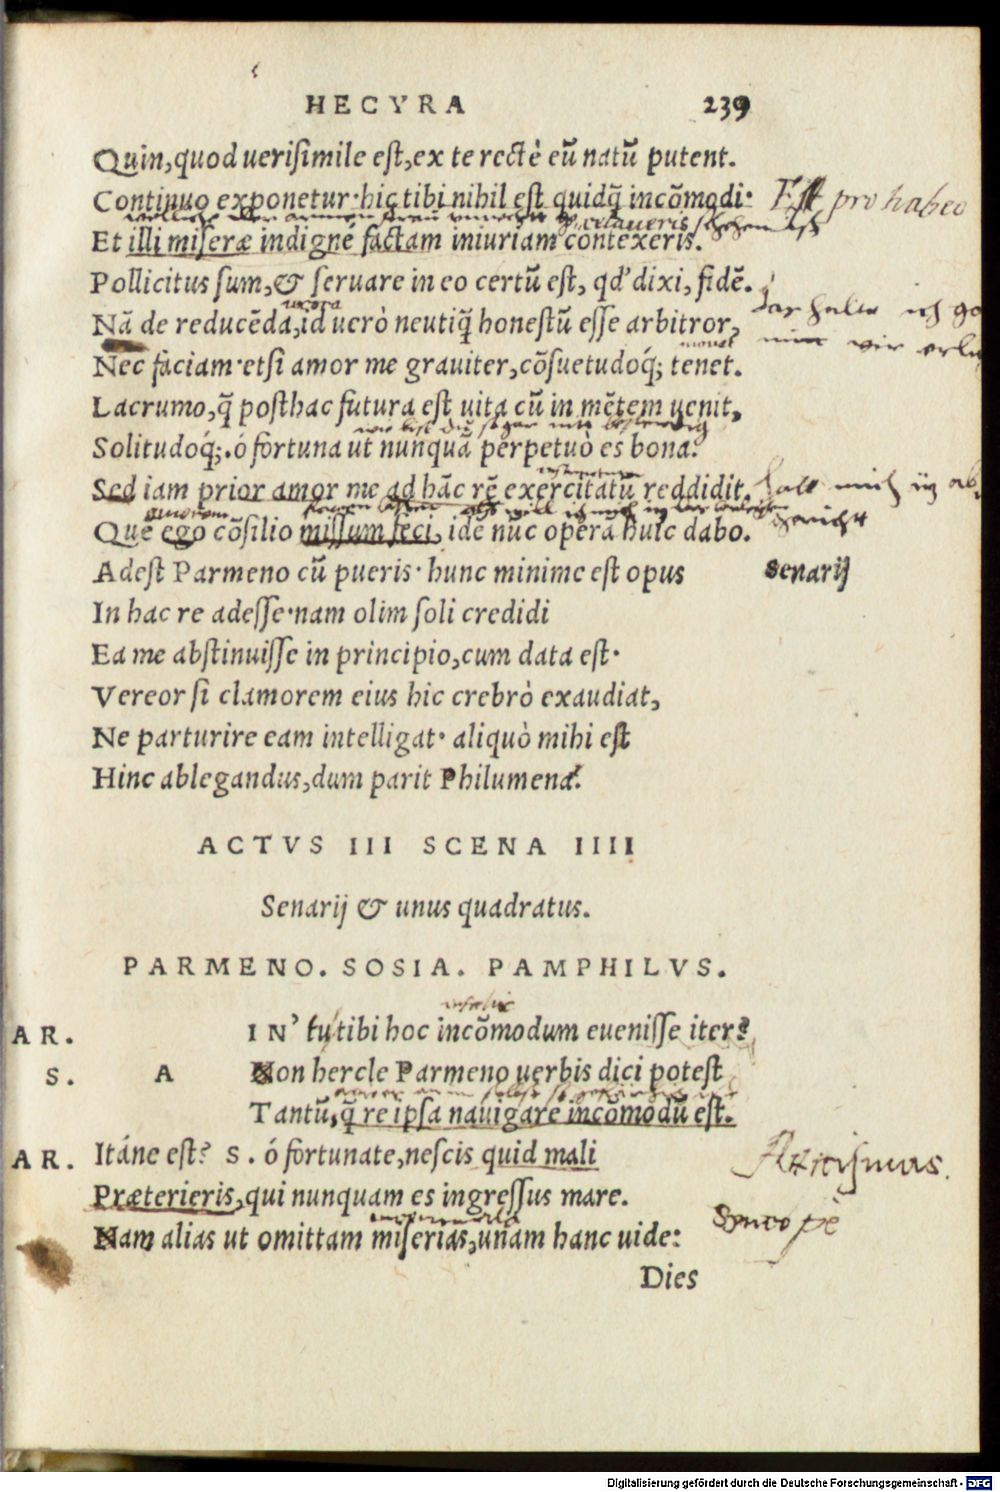 HECYRA 239
Quin, quod uerisimile est, ex te rectè eũ natũ putent.
Continuo exponetur· hic tibi nihil est quidq̃ incõmodi·
Est pro habeo
celaueris
Et illi miseræ indignè factam iniuriam contexeris.
Pollicitus sum, & seruare in eo certũ est, qd' dixi, fidẽ.
uxore
Nã de reducẽda, id uerò neutiq̃ honestũ esse arbitror,
mouet
Nec faciam· etsi amor me grauiter, cõsuetudoq́; tenet.
Lacrumo, q̃ posthac futura est uita cũ in mẽtem uenit,
Solitudoq́;. ó fortuna ut nunquã perpetuò es bona.
Sed iam prior amor me ad hãc rẽ exercitatũ reddidit.
amorem
Quẽ ego cõsilio missum feci, idẽ nũc operã huic dabo.
Adest Parmeno cũ pueris· hunc minime est opus
senarij
In hac re adesse· nam olim soli credidi
Ea me abstinuisse in principio, cum data est·
Vereor si clamorem eius hic crebrò exaudiat,
Ne parturire eam intelligat· aliquò mihi est
Hinc ablegandus, dum parit Philumena.
ACTVS III SCENA IIII
Senarij & unus quadratus.
PARMENO. SOSIA. PAMPHILVS.
AR. IN' tu tibi hoc incõmodum euenisse iter?
S. A Non hercle Parmeno uerbis dici potest
Tantũ, q̃ re ipsa nauigare incõmodũ est.
AR. Itáne est? S. ó fortunate, nescis quid mali
Præterieris, qui nunquam es ingressus mare.
syncope
Nam alias ut omittam miserias, unam hanc uide:
Dies
Digitalisierung gefördert durch die Deutsche Forschungsgemeinschaft - DFG